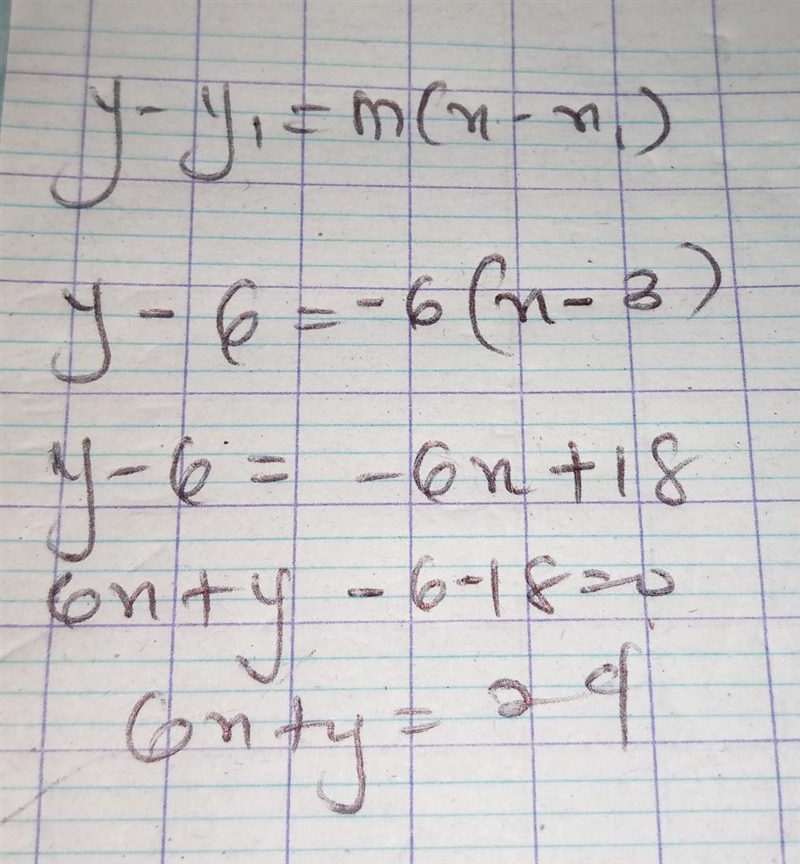 y - y₁ = m(x - x₁)
y - 6 = -6(x - 3)
y - 6 = -6x + 18
6x + y - 6 - 18 = 0
6x + y = 24